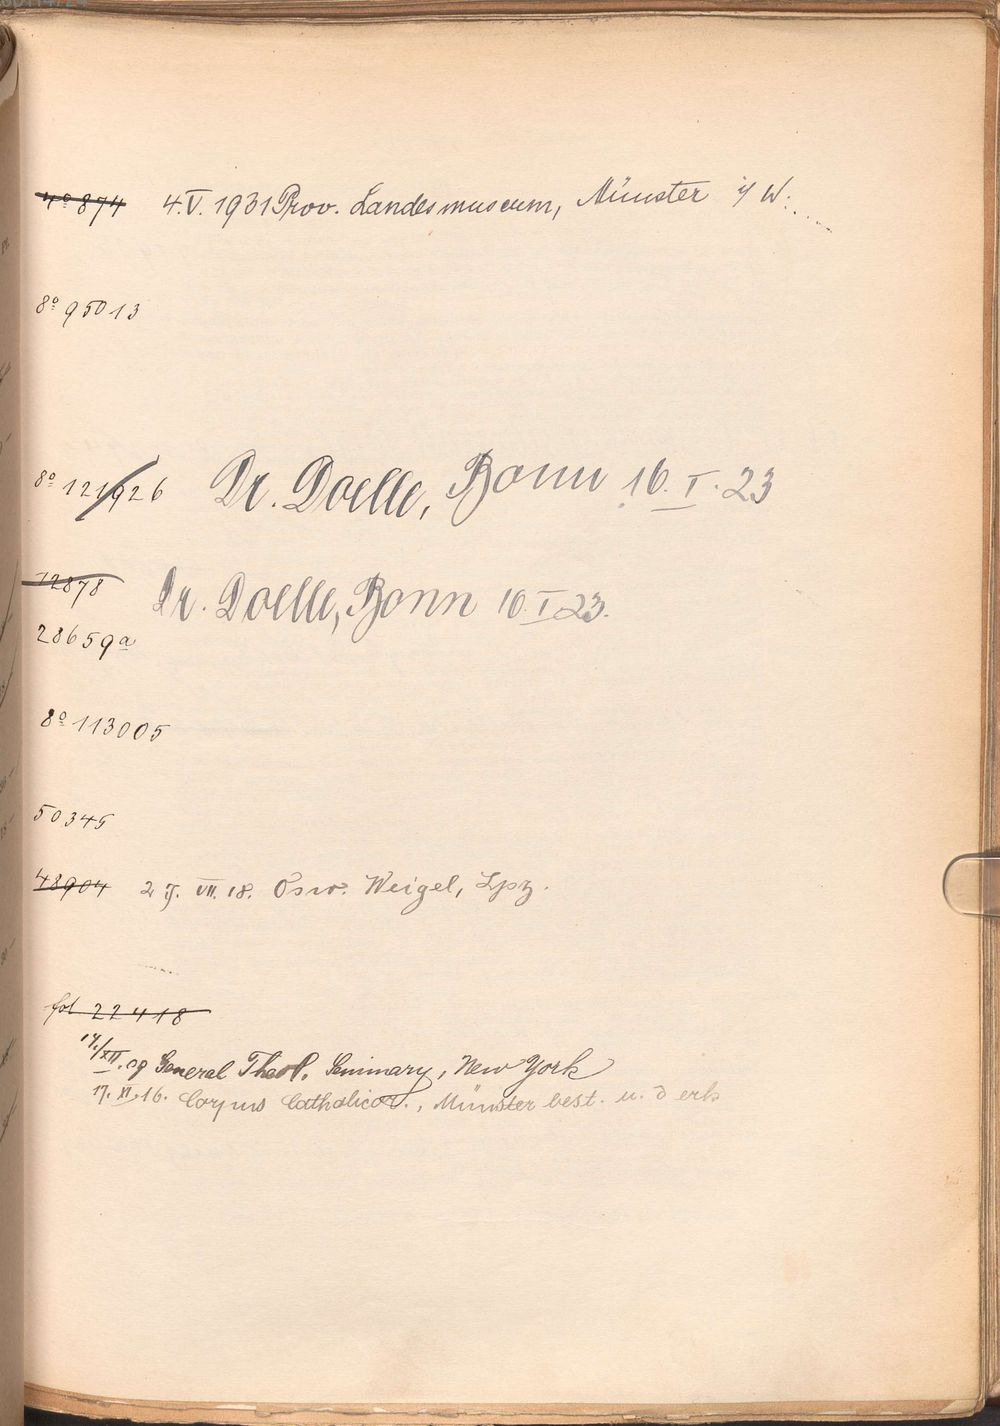 4º 874 4.V.1931 Prov. Landesmuseum, Münster i/W.
8º 95013
8º 121926 Dr. Doelle, Bonn 16.I.23
12878 Dr. Doelle, Bonn 16.I.23.
28659a
8º 113005
50345
48904 VII.18. Osw. Weigel, Lpz.
fol 22418
14./XII.09 General Theol. Seminary, New York
17.XI.16. Corpus Catholicor., Münster best. u.